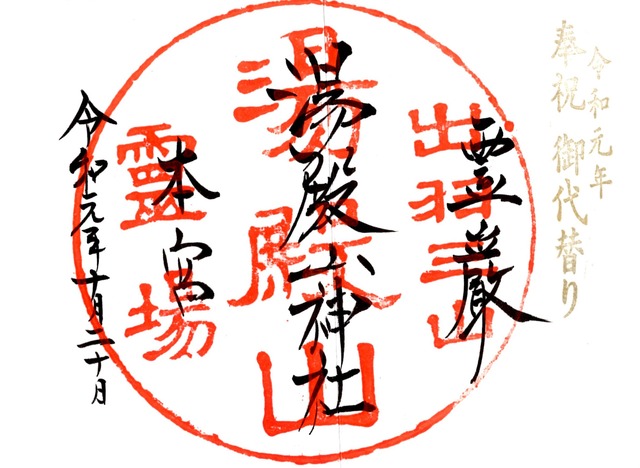 令和元年
奉祝 御代替り
出羽三山
霊巌
湯殿山
湯殿山神社
靈場
本宮
令和元年十月二十日